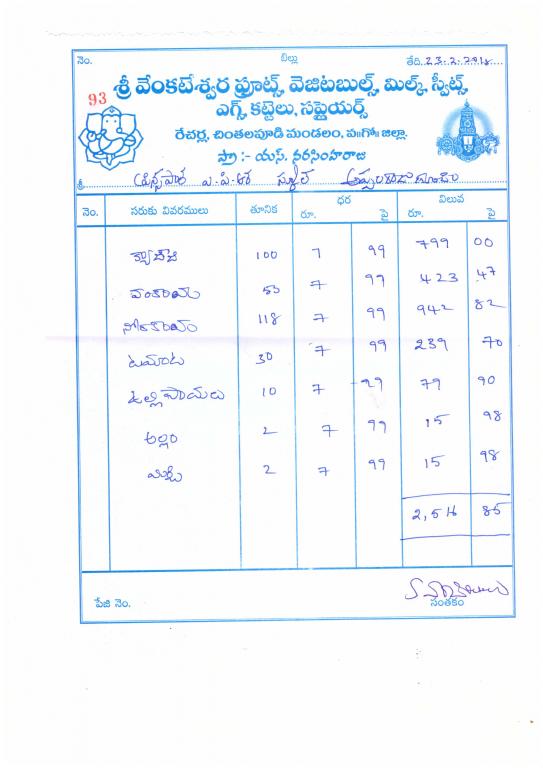 నెం. బిల్లు తేది. 23.2.2018
93
శ్రీ వేంకటేశ్వర ఫ్రూట్స్, వెజిటబుల్స్, మిల్క్, స్వీట్స్,
ఎగ్స్, కట్టెలు, సప్లైయర్స్
రేచర్ల, చింతలపూడి మండలం, ప॥గో॥ జిల్లా.
ప్రొ :- యస్. నరసింహరాజు
శ్రీ ఎ.పి.ఆర్ స్కూల్
నెం. సరుకు వివరములు తూనిక ధర విలువ
రూ. పై రూ. పై
క్యాబేజి 100 7 99 799 00
వంకాయ 53 7 99 423 47
118 7 99 942 82
టమాట 30 7 99 239 70
ఉల్లిపాయలు 10 7 99 79 90
అల్లం 2 7 99 15 98
మిర్చి 2 7 99 15 98
2,516 85
పేజి నెం. సంతకం